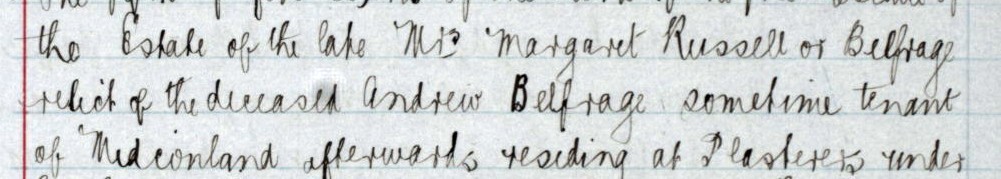 the Estate of the late Mrs Margaret Russell or Belfrage
relict of the deceased Andrew Belfrage sometime tenant
of afterwards residing at Plasterers under